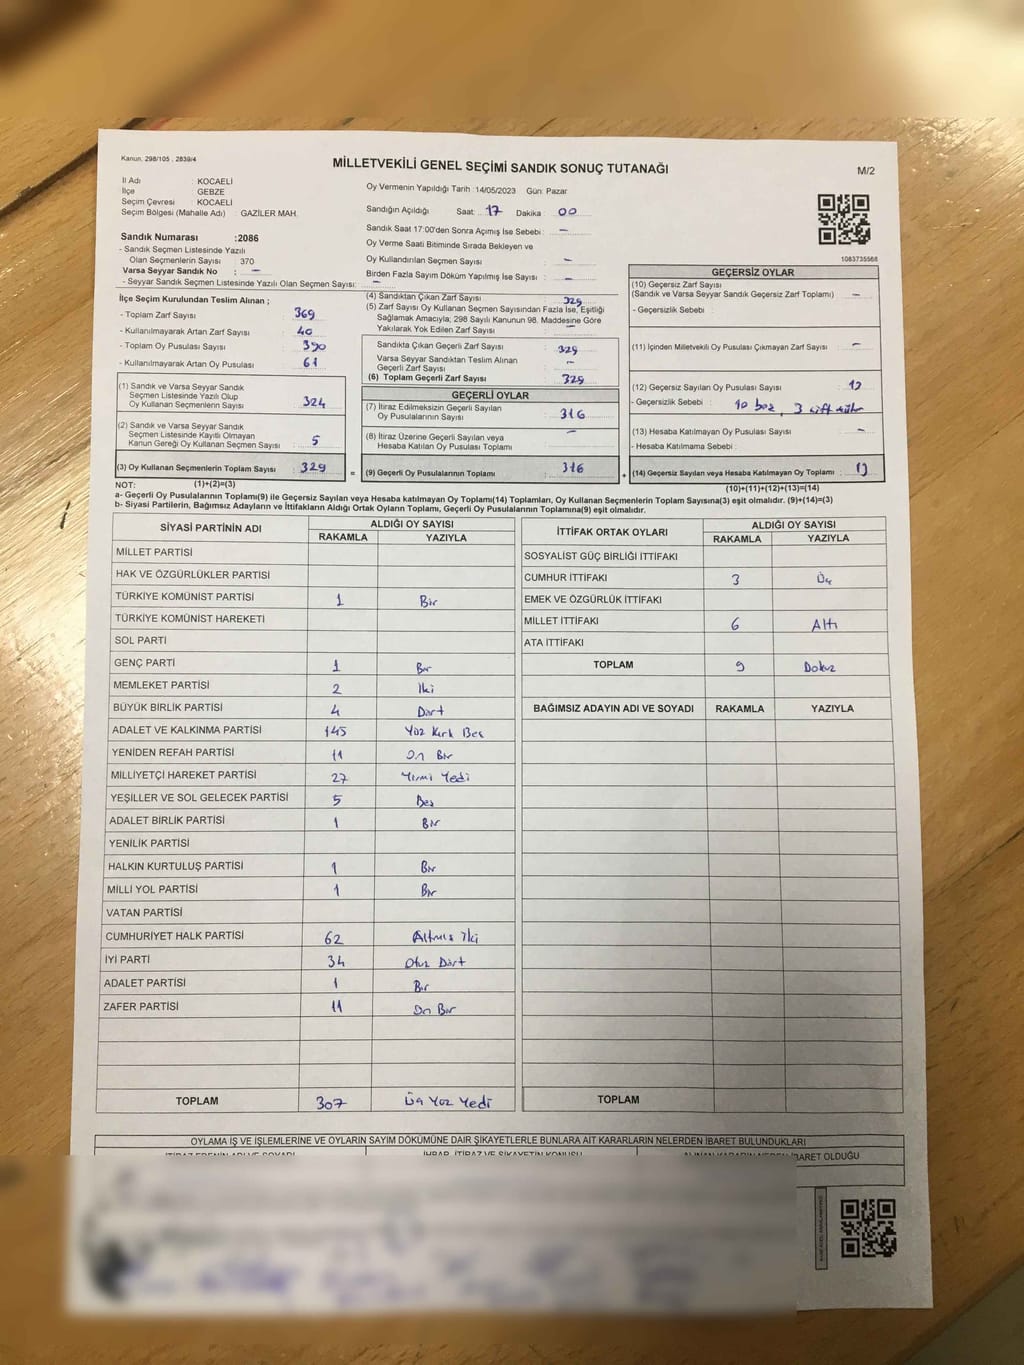 Kanun. 298/105 , 2839/4
MİLLETVEKİLİ GENEL SEÇİMİ SANDIK SONUÇ TUTANAĞI
M/2
İl Adı : KOCAELİ
İlçe : GEBZE
Seçim Çevresi : KOCAELİ
Seçim Bölgesi (Mahalle Adı) : GAZİLER MAH.
Oy Vermenin Yapıldığı Tarih :14/05/2023 Gün: Pazar
Sandığın Açıldığı Saat : 17 Dakika : 00
Sandık Saat 17:00'den Sonra Açımış İse Sebebi : –
Oy Verme Saati Bitiminde Sırada Bekleyen ve
Oy Kullandırılan Seçmen Sayısı : –
Birden Fazla Sayım Döküm Yapılmış İse Sayısı : –
Sandık Numarası :2086
- Sandık Seçmen Listesinde Yazılı
Olan Seçmenlerin Sayısı : 370
Varsa Seyyar Sandık No : –
- Seyyar Sandık Seçmen Listesinde Yazılı Olan Seçmen Sayısı: –
1083735568
İlçe Seçim Kurulundan Teslim Alınan ;
- Toplam Zarf Sayısı : 369
- Kullanılmayarak Artan Zarf Sayısı : 40
- Toplam Oy Pusulası Sayısı : 390
- Kullanılmayarak Artan Oy Pusulası : 61
(1) Sandık ve Varsa Seyyar Sandık
Seçmen Listesinde Yazılı Olup
Oy Kullanan Seçmenlerin Sayısı : 324
(2) Sandık ve Varsa Seyyar Sandık
Seçmen Listesinde Kayıtlı Olmayan
Kanun Gereği Oy Kullanan Seçmen Sayısı : 5
(3) Oy Kullanan Seçmenlerin Toplam Sayısı : 329
(4) Sandıktan Çıkan Zarf Sayısı : 329
(5) Zarf Sayısı Oy Kullanan Seçmen Sayısından Fazla İse, Eşitliği
Sağlamak Amacıyla; 298 Sayılı Kanunun 98. Maddesine Göre
Yakılarak Yok Edilen Zarf Sayısı : –
Sandıkta Çıkan Geçerli Zarf Sayısı : 329
Varsa Seyyar Sandıktan Teslim Alınan
Geçerli Zarf Sayısı : –
(6) Toplam Geçerli Zarf Sayısı : 329
GEÇERLİ OYLAR
(7) İtiraz Edilmeksizin Geçerli Sayılan
Oy Pusulalarının Sayısı : 316
(8) İtiraz Üzerine Geçerli Sayılan veya
Hesaba Katılan Oy Pusulası Toplamı : –
= (9) Geçerli Oy Pusulalarının Toplamı : 316
GEÇERSİZ OYLAR
(10) Geçersiz Zarf Sayısı
(Sandık ve Varsa Seyyar Sandık Geçersiz Zarf Toplamı) : –
- Geçersizlik Sebebi :
(11) İçinden Milletvekili Oy Pusulası Çıkmayan Zarf Sayısı : –
(12) Geçersiz Sayılan Oy Pusulası Sayısı : 13
- Geçersizlik Sebebi : 10 boş, 3 çift mühür
(13) Hesaba Katılmayan Oy Pusulası Sayısı : –
- Hesaba Katılmama Sebebi :
+ (14) Geçersiz Sayılan veya Hesaba Katılmayan Oy Toplamı : 13
NOT: (1)+(2)=(3)
(10)+(11)+(12)+(13)=(14)
a- Geçerli Oy Pusulalarının Toplamı(9) ile Geçersiz Sayılan veya Hesaba katılmayan Oy Toplamı(14) Toplamları, Oy Kullanan Seçmenlerin Toplam Sayısına(3) eşit olmalıdır. (9)+(14)=(3)
b- Siyasi Partilerin, Bağımsız Adayların ve İttifakların Aldığı Ortak Oyların Toplamı, Geçerli Oy Pusulalarının Toplamına(9) eşit olmalıdır.
SİYASİ PARTİNİN ADI ALDIĞI OY SAYISI
RAKAMLA YAZIYLA
MİLLET PARTİSİ
HAK VE ÖZGÜRLÜKLER PARTİSİ
TÜRKİYE KOMÜNİST PARTİSİ 1 Bir
TÜRKİYE KOMÜNİST HAREKETİ
SOL PARTİ
GENÇ PARTİ 1 Bir
MEMLEKET PARTİSİ 2 İki
BÜYÜK BİRLİK PARTİSİ 4 Dört
ADALET VE KALKINMA PARTİSİ 145 Yüz Kırk Beş
YENİDEN REFAH PARTİSİ 11 On Bir
MİLLİYETÇİ HAREKET PARTİSİ 27 Yirmi Yedi
YEŞİLLER VE SOL GELECEK PARTİSİ 5 Beş
ADALET BİRLİK PARTİSİ 1 Bir
YENİLİK PARTİSİ
HALKIN KURTULUŞ PARTİSİ 1 Bir
MİLLİ YOL PARTİSİ 1 Bir
VATAN PARTİSİ
CUMHURİYET HALK PARTİSİ 62 Altmış İki
İYİ PARTİ 34 Otuz Dört
ADALET PARTİSİ 1 Bir
ZAFER PARTİSİ 11 On Bir
TOPLAM 307 Üç Yüz Yedi
İTTİFAK ORTAK OYLARI ALDIĞI OY SAYISI
RAKAMLA YAZIYLA
SOSYALİST GÜÇ BİRLİĞİ İTTİFAKI
CUMHUR İTTİFAKI 3 Üç
EMEK VE ÖZGÜRLÜK İTTİFAKI
MİLLET İTTİFAKI 6 Altı
ATA İTTİFAKI
TOPLAM 9 Dokuz
BAĞIMSIZ ADAYIN ADI VE SOYADI RAKAMLA YAZIYLA
TOPLAM
OYLAMA İŞ VE İŞLEMLERİNE VE OYLARIN SAYIM DÖKÜMÜNE DAİR ŞİKAYETLERLE BUNLARA AİT KARARLARIN NELERDEN İBARET BULUNDUKLARI
İTİRAZ EDENİN ADI VE SOYADI İHBAR, İTİRAZ VE ŞİKAYETİN KONUSU ALINAN KARARIN NEDEN İBARET OLDUĞU